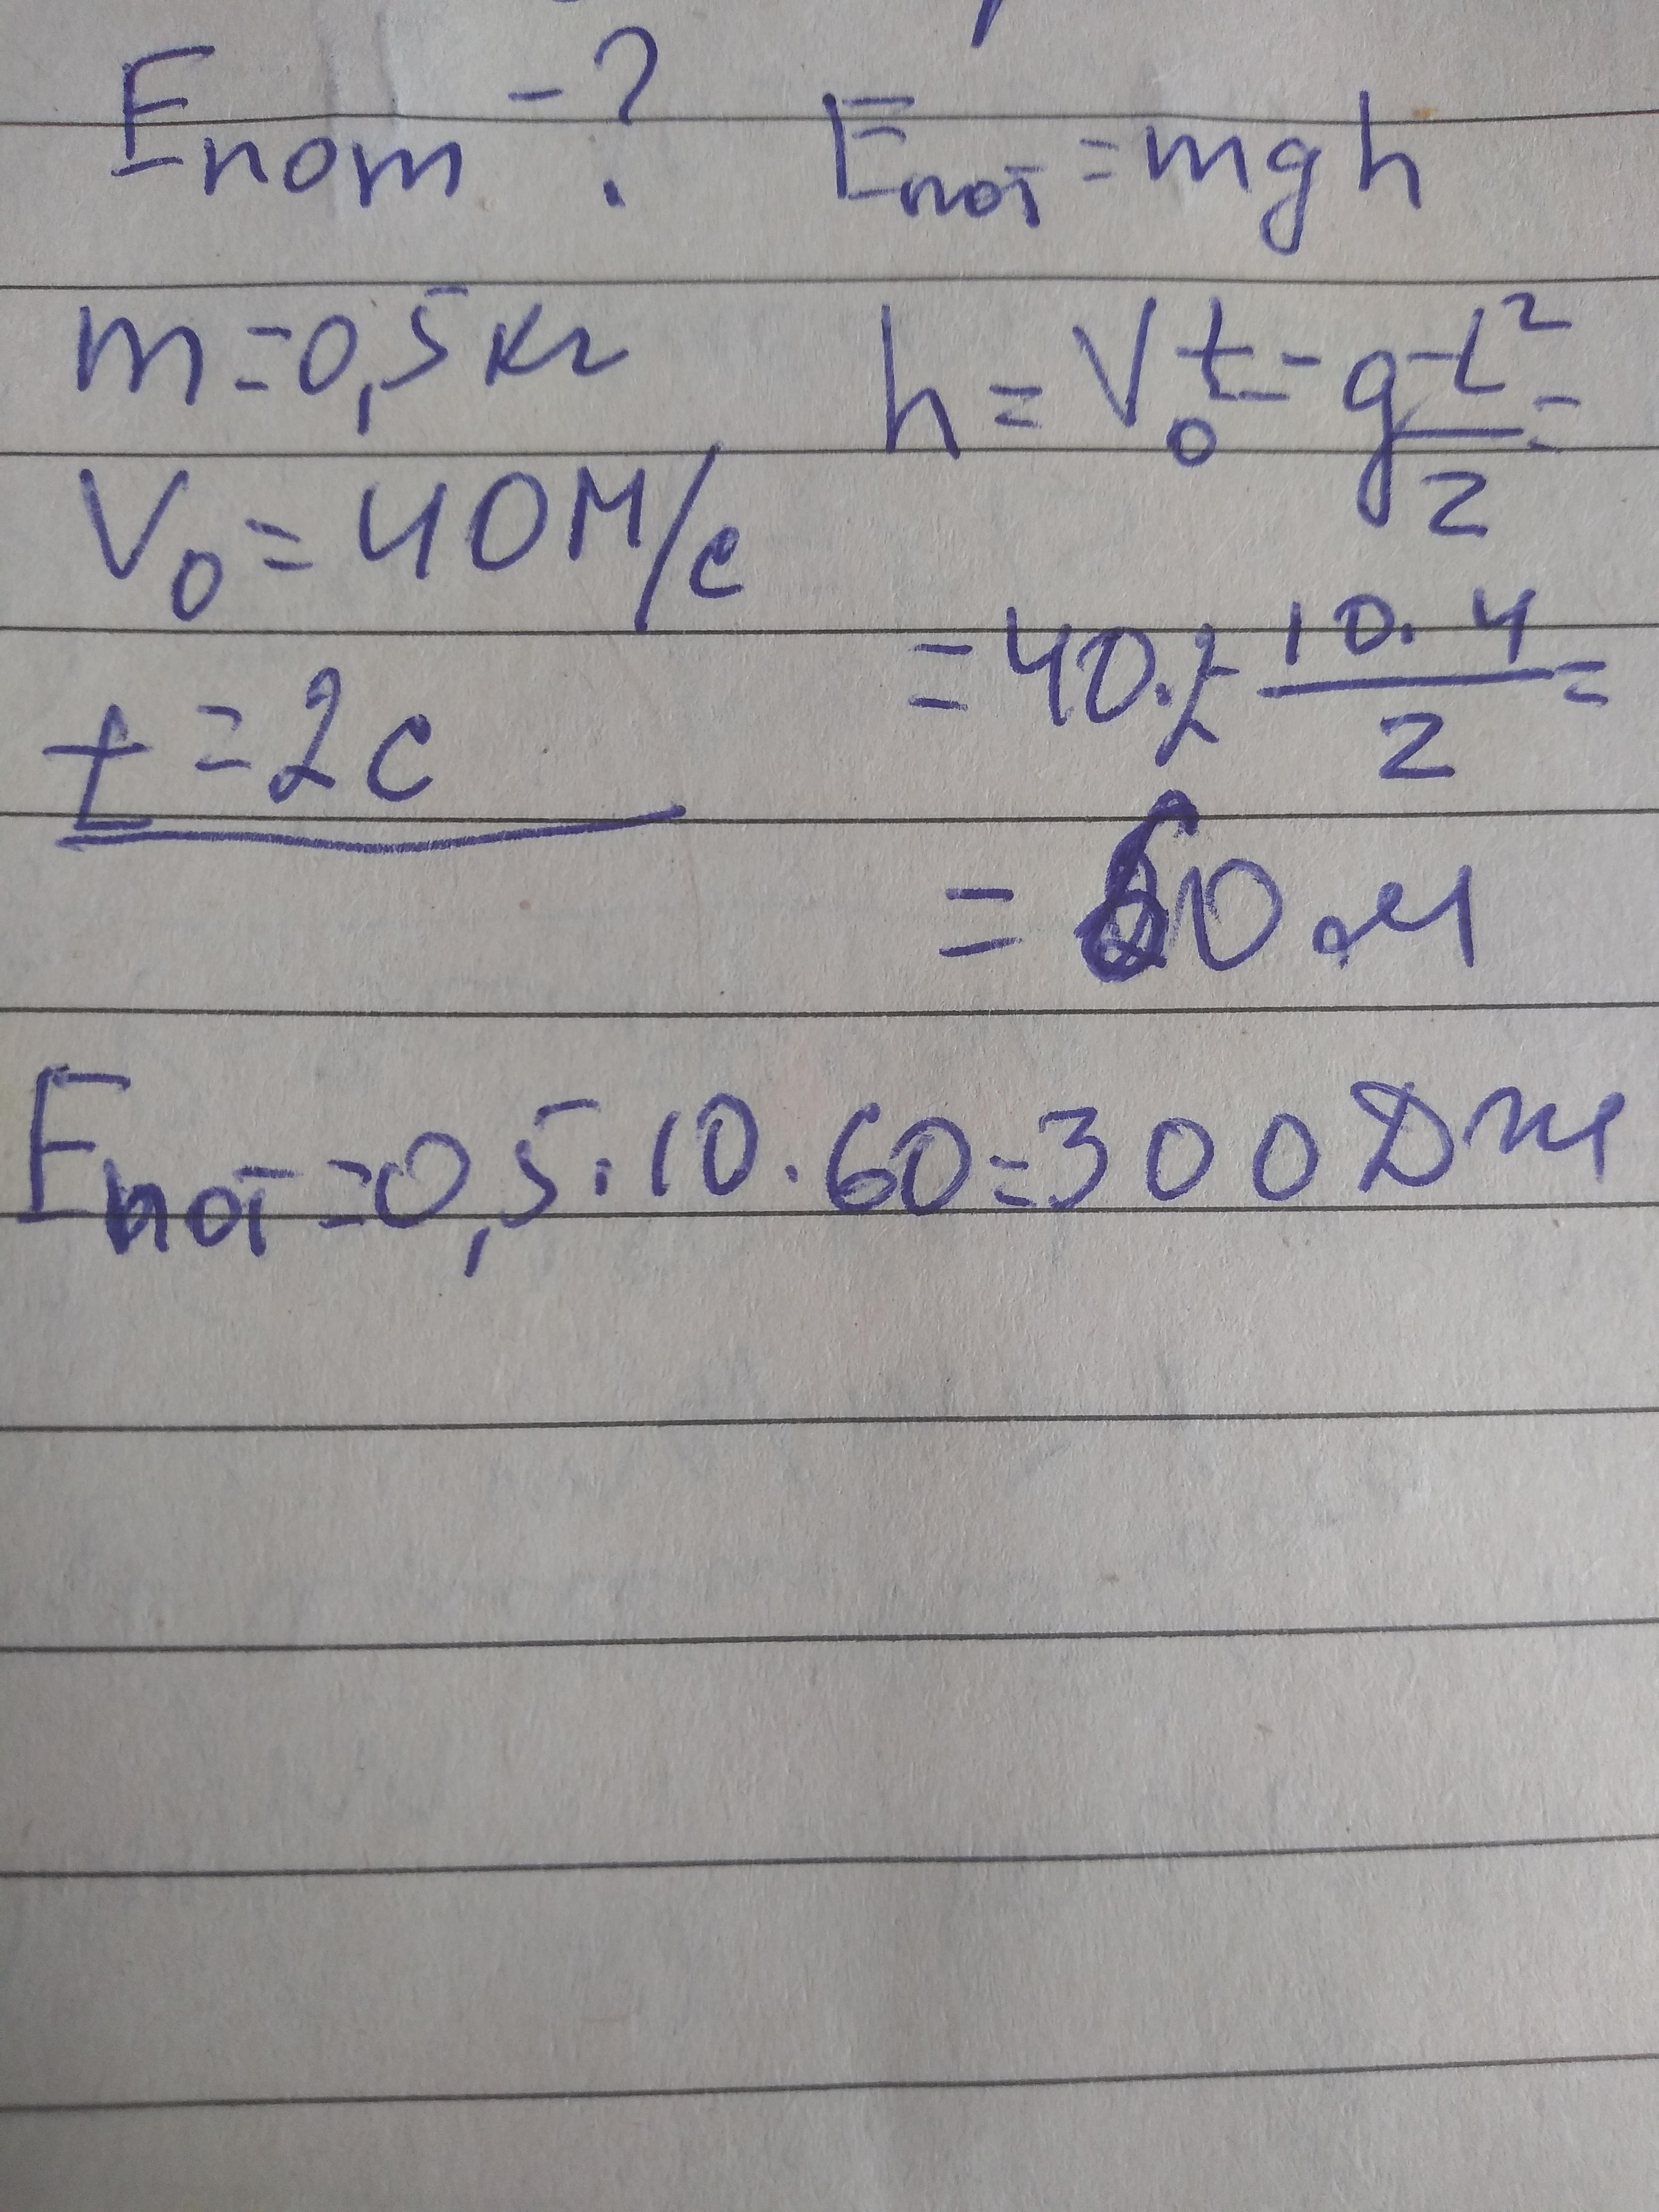 Eпот - ?
Eпот = mgh
m = 0,5 кг
h = V₀t - gt²/2 =
V₀ = 40 м/с
= 40·2 - 10·4/2 =
t = 2 с
= 60 м
Eпот = 0,5·10·60 = 300 Дж